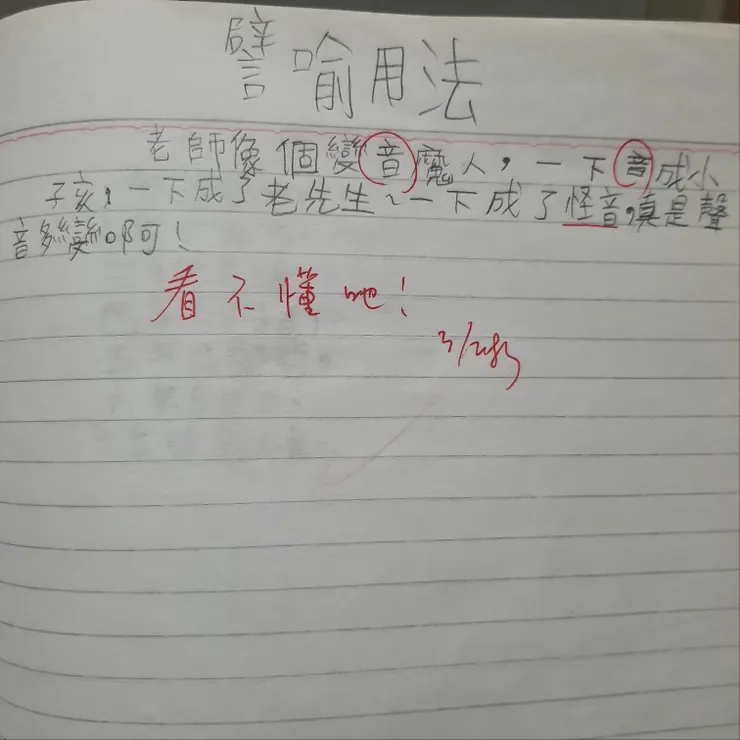 譬喻用法
老師像個變音魔人，一下音成小
子亥，一下成了老先生、一下成了怪音，真是聲
音多變啊！
看不懂吔！
3/28